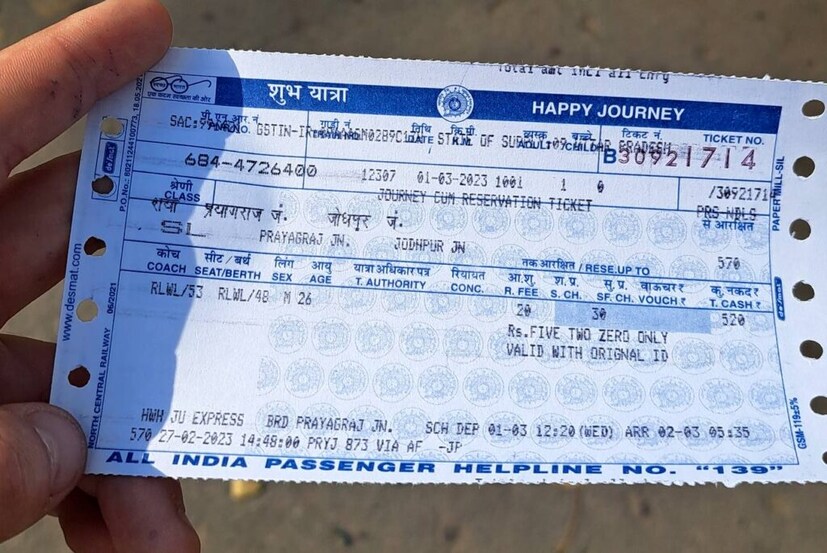 Total amt incl all chrg
शुभ यात्रा HAPPY JOURNEY
पी.एन.आर.नं. गाड़ी नं. तिथि कि.मी. वयस्क बच्चे टिकट नं. TICKET NO.
PNR NO. TRAIN NO. DATE K.M. ADULT CHILD B30921714
684-4726400 12307 01-03-2023 1001 1 0 /3092171
श्रेणी CLASS JOURNEY CUM RESERVATION TICKET PRS-NDLS
प्रयागराज जं. जोधपुर जं. से आरक्षित
SL PRAYAGRAJ JN. JODHPUR JN 570
कोच सीट / बर्थ लिंग आयु यात्रा अधिकार पत्र रियायत तक आरक्षित / RESE.UP TO
COACH SEAT/BERTH SEX AGE T. AUTHORITY CONC. आ.शु. R. FEE श.प्र. S. CH. सु.प्र. वाऊचर ₹ SF. CH. VOUCHR ₹ कु. नकद ₹ T. CASH ₹
RLWL/53 RLWL/48 M 26 20 30 520
Rs.FIVE TWO ZERO ONLY
VALID WITH ORIGNAL ID
HWH JU EXPRESS BRD PRAYAGRAJ JN. SCH DEP 01-03 12:20(WED) ARR 02-03 05:35
570 27-02-2023 14:48:00 PRYJ 873 VIA AF -JP
ALL INDIA PASSENGER HELPLINE NO. "139"
www.desmat.com
06/2021
NORTH CENTRAL RAILWAY
PAPER MILL-SIL
GSM-119±5%